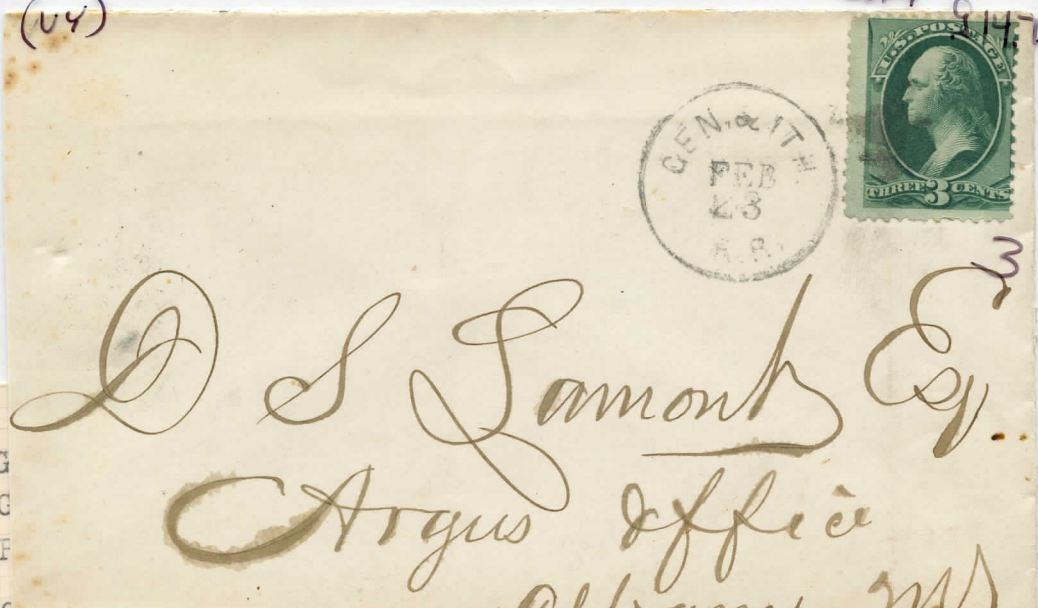 (NY)
U.S. POSTAGE
THREE 3 CENTS
GEN. & ITH
FEB
23
R. R.
3
D S Lamont Esq
Argus Office
Albany NY